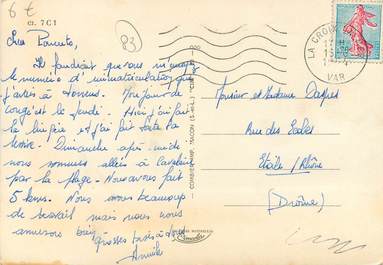 6 €
cl. 7C1
83
Chers Parents,
Il faudrait que vous m'envoyez
le numéro d'immatriculation que
j'avais à Mon jour de
congé est le jeudi. Hier j'ai fait
la lessive et j'ai fait toute la
Dimanche après-midi
nous sommes allées à Cavalaire
par la plage. Nous avons fait
5 kms. Nous avons beaucoup
de travail mais nous nous
amusons bien.
grosses bises à tous
Annick
COMBIER IMP. MACON (S.-&-L.)
LA CROIX
VAR
Monsieur et Madame
Rue des Ecoles
Etoile / Rhône
(Drôme)